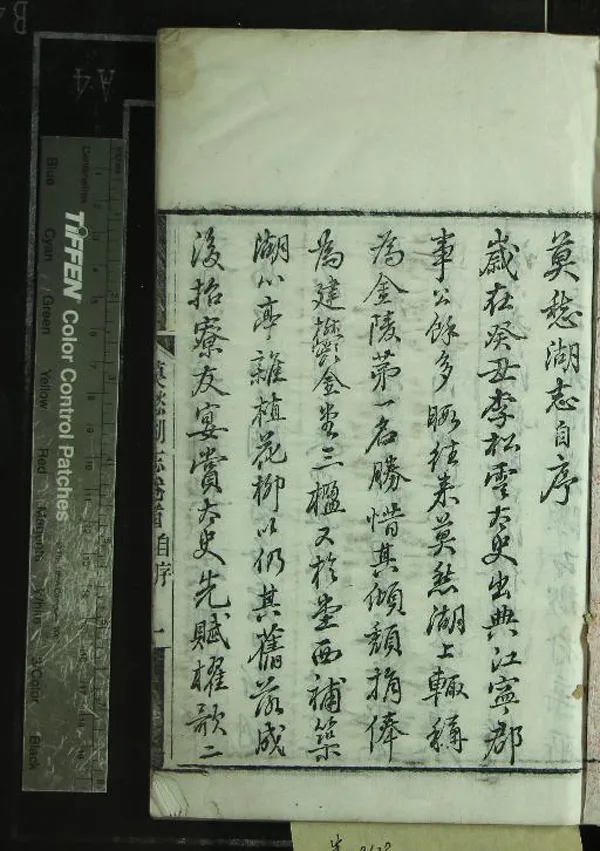 莫愁湖志自序
歲在癸丑李松雲太史出典江寧郡
事公餘多暇往來莫愁湖上輒稱
為金陵第一名勝惜其傾頹捐俸
為建鬱金堂三楹又於堂西補築
湖心亭雜植花柳以仍其舊落成
後招寮友宴賞太史先賦櫂歌二
莫愁湖志卷首自序 一
TIFFEN Color Control Patches
Centimetres
Inches
Blue
Cyan
Green
Yellow
Red
Magenta
White
3/Color
Black
A4
B